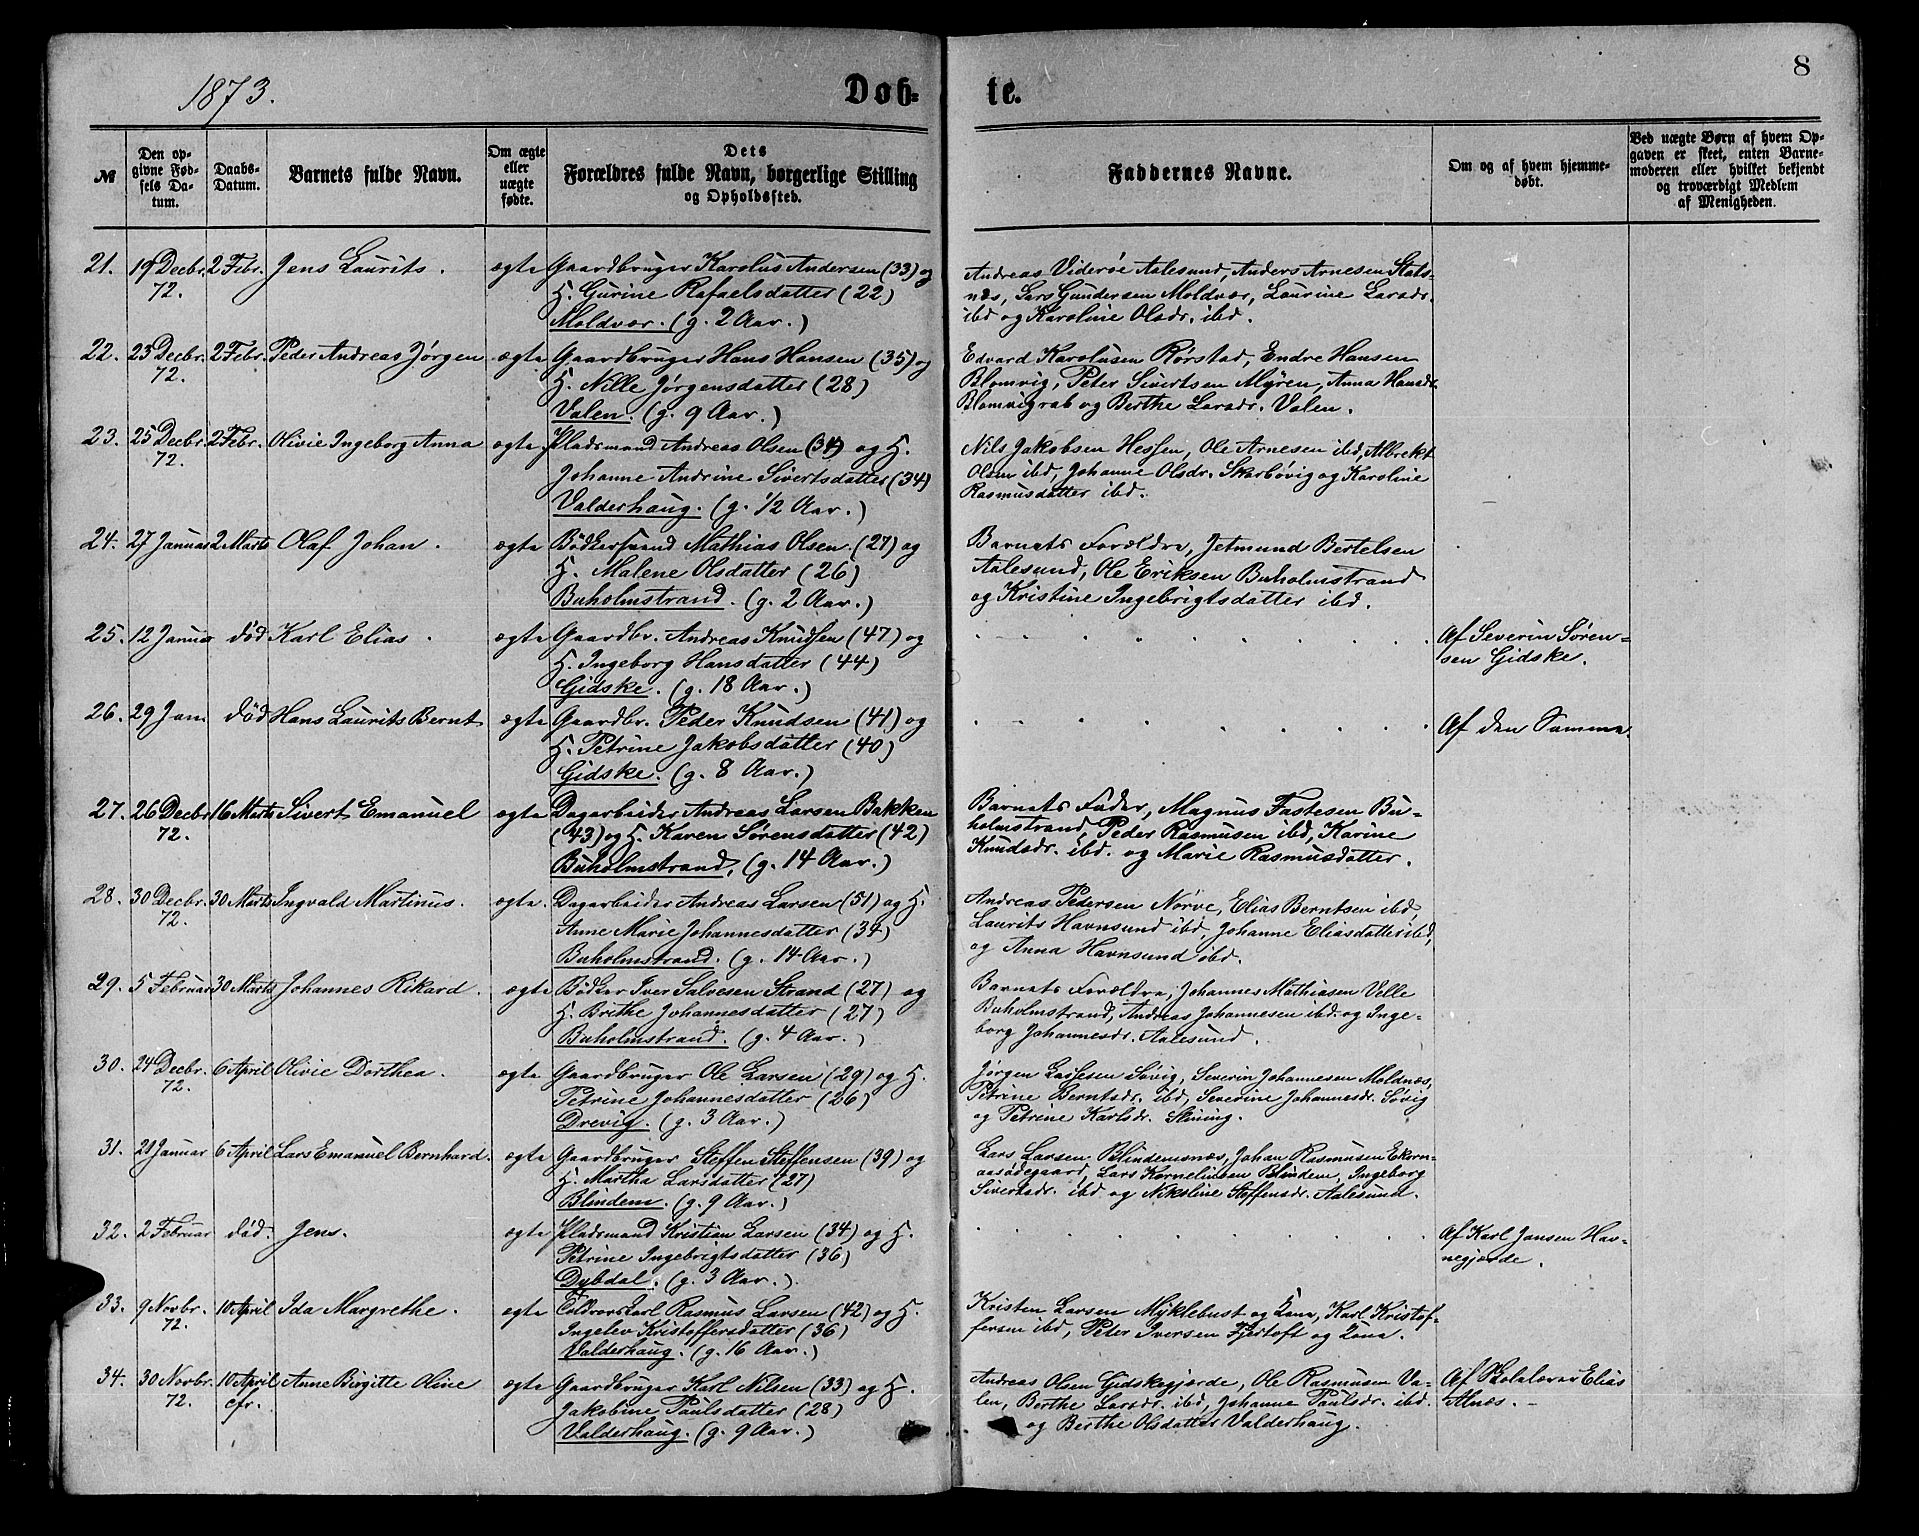 1873.
Døb-
te.
8
№
Den op-
givne Fød-
sels Da-
tum.
Daabs-
Datum.
Barnets fulde Navn.
Om ægte
eller
uægte
fødte.
Dets
Forældres fulde Navn, borgerlige Stilling
og Opholdssted.
Faddernes Navne.
Om og af hvem hjemme-
døbt.
Ved uægte Børn af hvem Op-
gaven er skeet, enten Barne-
moderen eller hvilket bekjendt
og troværdigt Medlem
af Menigheden.
21. 19 Decbr. 2 Febr. Jens Laurits. ægte Gaardbruger Karolus Andersen (33) og
72. H. Gurine Rafaelsdatter (22)
Moldvær. (g. 2 Aar.)
Andreas Viderøe Aalesund, Anders Arnesen Stats-
næs, Lars Gundersen Moldvær, Laurine Larsdr.
ibd og Karoline Olsdr. ibd.
22. 23 Decbr. 2 Febr. Peder Andreas Jørgen ægte Gaardbruger Hans Hansen (35) og
72. H. Nille Jørgensdatter (28)
Valen. (g. 9 Aar.)
Edvard Karolusen Rørstad, Endre Hansen
Blomvig, Peter Sivertsen Myren, Anna Hansdr.
Blomvigrab og Berthe Larsdr. Valen.
23. 25 Decbr. 2 Febr. Olivie Ingeborg Anna ægte Pladsmand Andreas Olsen (34) og H.
72. Johanne Andrine Sivertsdatter (34)
Valderhaug. (g. 1/2 Aar.)
Nils Jakobsen Hessen, Ole Arnesen ibd, Albrekt
Olsen ibd, Johanne Olsdr. Skarbøvig og Karoline
Rasmusdatter ibd.
24. 27 Januar 2 Marts Olaf Johan. ægte Bødkersvend Mathias Olsen. (27) og
H. Malene Olsdatter (26)
Buholmstrand. (g. 2 Aar.)
Barnets Forældre, Jetmund Bertelsen
Aalesund, Ole Eriksen Buholmstrand
og Kristine Ingebrigtsdatter ibd.
25. 12 Januar død Karl Elias. ægte Gaardbr. Andreas Knudsen (47) og
H. Ingeborg Hansdatter (44)
Gidske. (g. 18 Aar.)
Af Severin Søren-
sen Gidske.
26. 29 Jan. død Hans Laurits Bernt ægte Gaardbr. Peder Knudsen (41) og
H. Petrine Jakobsdatter (40)
Gidske. (g. 8 Aar.)
Af den Samme.
27. 26 Decbr 16 Marts Sivert Emanuel ægte Dagarbeider Andreas Larsen Bakken
72. (43) og H. Karen Sørensdatter (42)
Buholmstrand, (g. 14 Aar.)
Barnets Fader, Magnus Fastesen Bu-
holmstrand, Peder Rasmusen ibd, Karine
Knudsdr. ibd. og Marie Rasmusdatter.
28. 30 Decbr. 30 Marts Ingvald Martinus. ægte. Dagarbeider Andreas Larsen (51) og H.
72. Anne Marie Johannesdatter (34)
Buholmstrand. (g. 14 Aar.)
Andreas Pedersen Nørve, Elias Berntsen ibd,
Laurits Havnsund ibd, Johanne Eliasdatter ibd,
og Anna Havnsund ibd.
29. 5 Februar 30 Marts Johannes Rikard. ægte Bødker Iver Salvesen Strand (27) og
H. Brithe Johannesdatter (27)
Buholmstrand. (g. 4 Aar.)
Barnets Forældre, Johannes Mathiasen Velle
Buholmstrand, Andreas Johannesen ibd. og Inge-
borg Johannesdr. Aalesund.
30. 24 Decbr. 6 April Olivie Dorthea. ægte Gaardbruger Ole Larsen (29) og H.
72. Petrine Johannesdatter (26)
Drevig. (g. 3 Aar.)
Jørgen Lassesen Søvig, Severin Johannesen Moldnæs,
Petrine Berntsdr. ibd, Severine Johannesdr. Søvig
og Petrine Karlsdr. Slining.
31. 21 Januar 6 April Lars Emanuel Bernhard. ægte Gaardbruger Steffen Steffensen (39) og
H. Martha Larsdatter (27)
Blindem. (g. 9 Aar.)
Lars Larsen Blindemsnæs, Johan Rasmusen Ekorn-
aasødegaard, Lars Kornelinsen Blindem, Ingeborg
Sivertsdr. ibd og Nikoline Steffensdr. Aalesund.
32. 2 Februar død. Jens. ægte Pladsmand Kristian Larsen (34) og H.
Petrine Ingebrigtsdatter (36)
Dybdal. (g. 3 Aar.)
Af Karl Jansen Hav-
negjerde.
33. 9 Novbr. 10 April Ida Margrethe. ægte Føldrørskarl Rasmus Larsen (42) og H.
72. Ingelev Kristoffersdatter (36)
Valderhaug. (g. 16 Aar.)
Kristen Larsen Myklebust og Kone, Karl Kristof-
fersen ibd, Peter Iversen Fjørtoft og Kone.
34. 30 Novbr. 10 April Anne Birgitte Oline ægte Gaardbruger Karl Nilsen (33) og H.
72. cfr. Jakobine Paulsdatter (28)
Valderhaug. (g. 9 Aar.)
Andreas Olsen Gidskegjerde, Ole Rasmusen Va-
len, Berthe Larsdr. ibd, Johanne Paulsdr. ibd.
og Berthe Olsdatter Valderhaug.
Af Skolelærer Elias
Alnæs.